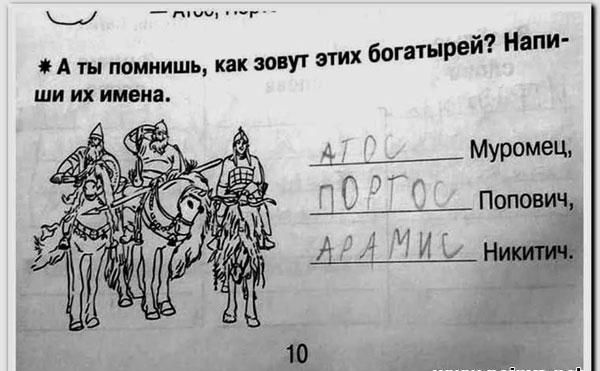 — Атос, Порто
* А ты помнишь, как зовут этих богатырей? Напи-
ши их имена.
АТОС Муромец,
ПОРТОС Попович,
АРАМИС Никитич.
10